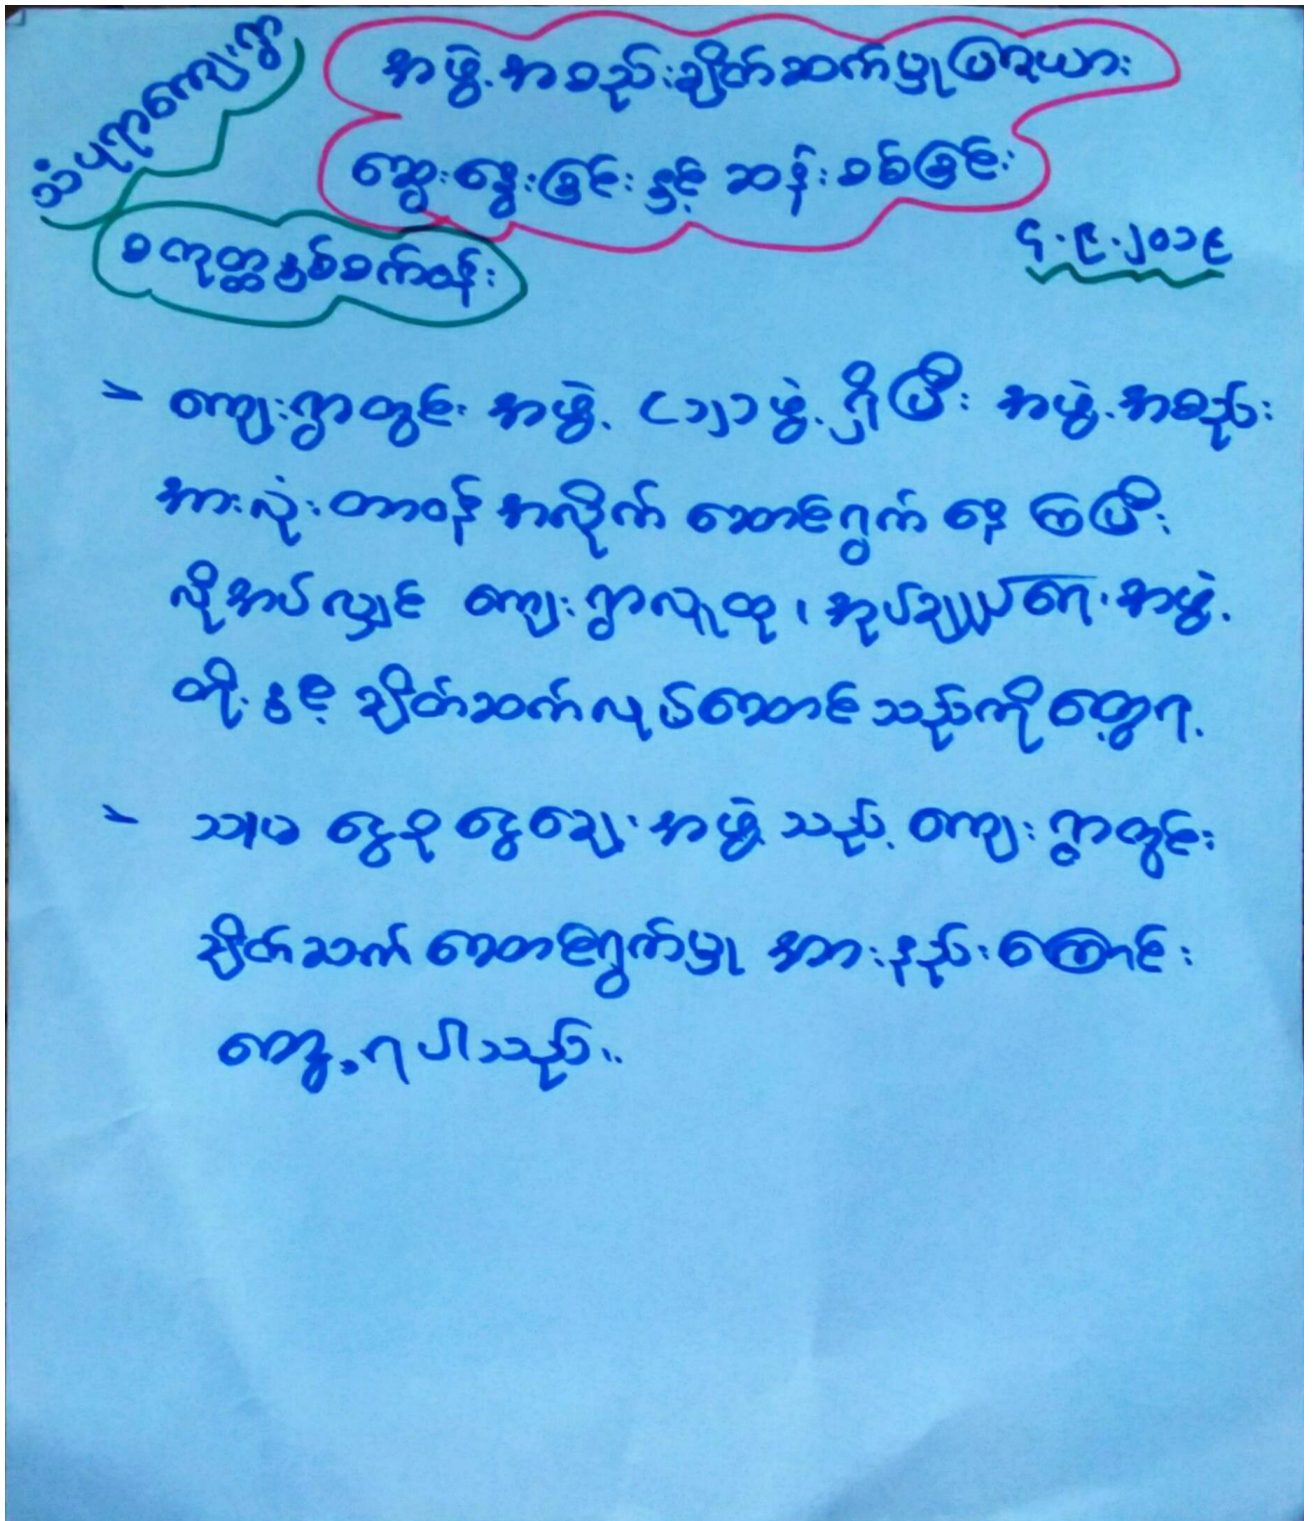 သံပုရာကျေးရွာ
အဖွဲ့အစည်းချိတ်ဆက်မှုပြဇယား
ဆွေးနွေးခြင်းနှင့် ဆန်းစစ်ခြင်း
စကုတ္တနှစ်စက်ဝန်း
၄.၉.၂၀၁၉
- ကျေးရွာတွင်း အဖွဲ့ ၁၂ ဖွဲ့ရှိပြီး အဖွဲ့အစည်း
အားလုံး တာဝန် အလိုက် ဆောင်ရွက် နေ ကြပြီး
လိုအပ်လျှင် ကျေးရွာလူထု၊ အုပ်ချုပ်ရေးအဖွဲ့
တို့နှင့် ချိတ်ဆက်လုပ်ဆောင်သည်ကိုတွေ့ရ
- သာမ ငွေစုငွေချေးအဖွဲ့သည် ကျေးရွာတွင်း
ချိတ်ဆက် ဆောင်ရွက်မှု အားနည်းကြောင်း
တွေ့ရပါသည်။